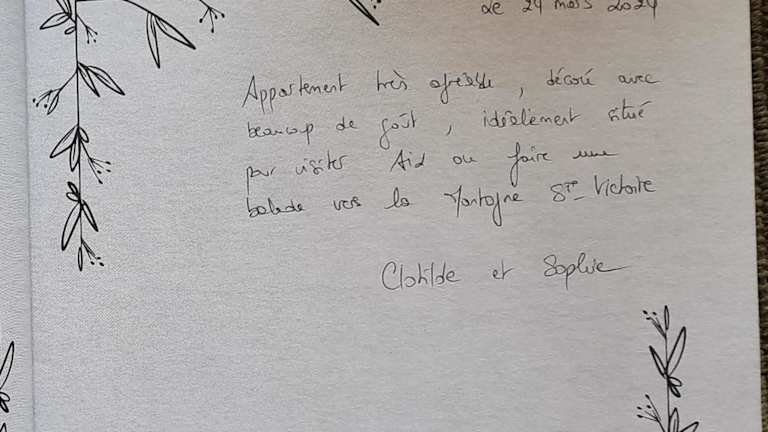 de 24 mars 2024
Appartement très agréable, décoré avec
beaucoup de goût, idéalement situé
pour visiter Aix ou faire une
balade vers la Montagne Ste-Victoire
Clotilde et Sophie